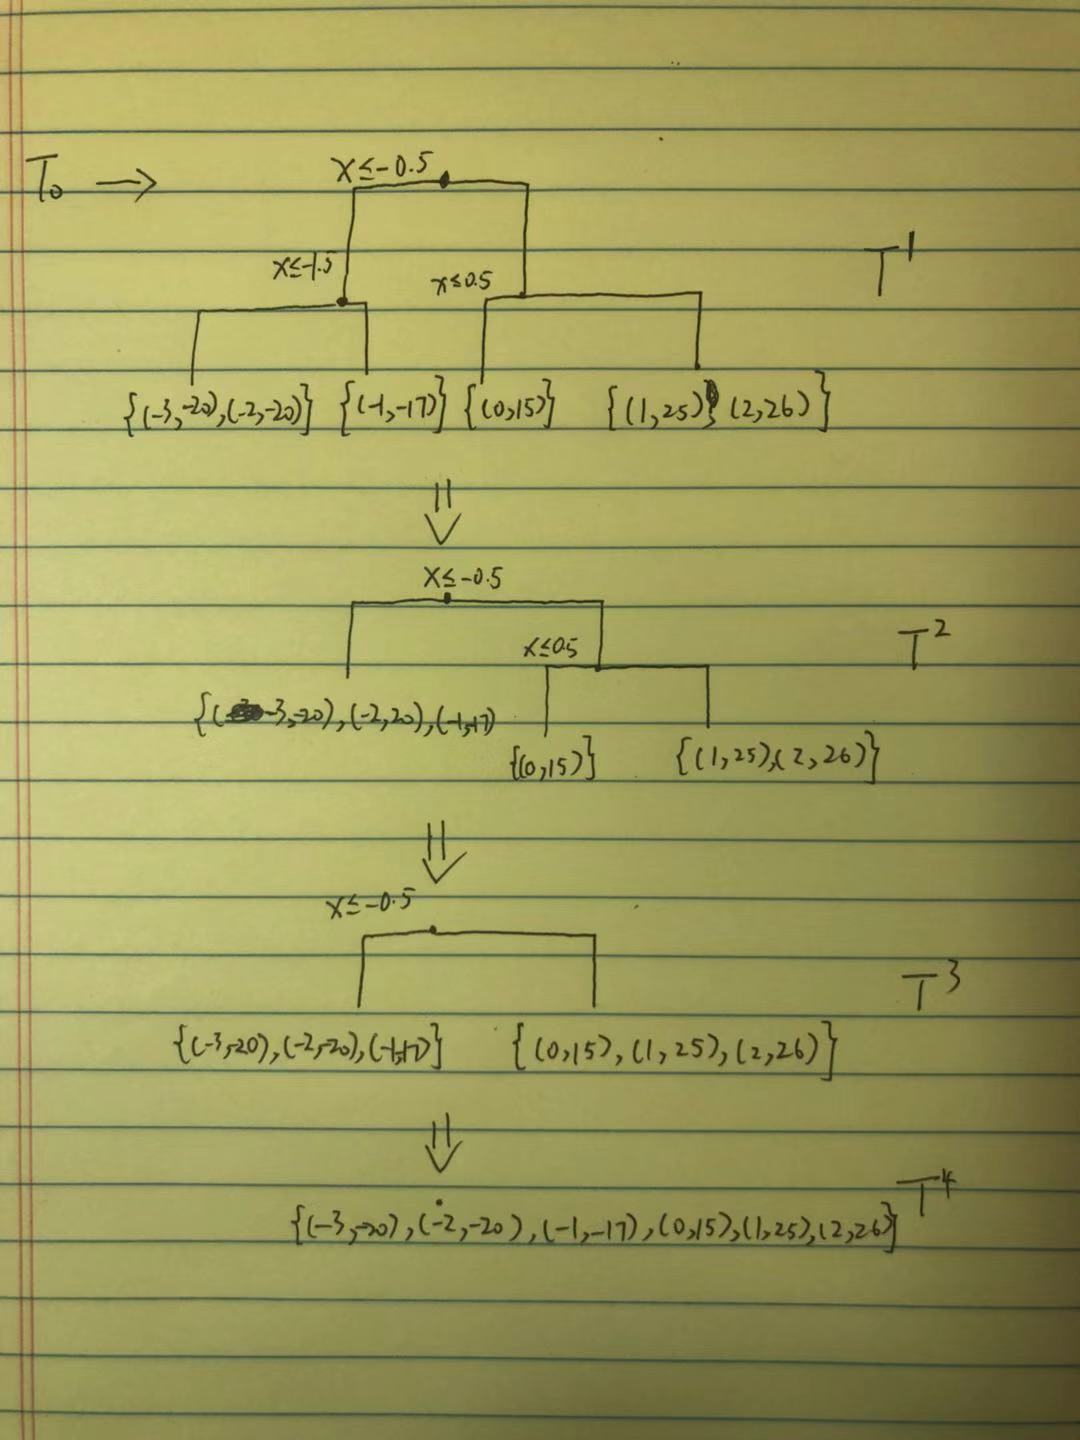 T₀ → x≤-0.5
T¹
x≤-1.5 x≤0.5
{(-3,-20),(-2,-20)} {(-1,-17)} {(0,15)} {(1,25), (2,26)}
⇓
x≤-0.5
T²
x≤0.5
{(-3,-20),(-2,20),(-1,-17)
{(0,15)} {(1,25),(2,26)}
⇓
x≤-0.5
T³
{(-3,-20),(-2,-20),(-1,17)} {(0,15),(1,25),(2,26)}
⇓
T⁴
{(-3,-20),(-2,-20),(-1,-17),(0,15),(1,25),(2,26)}